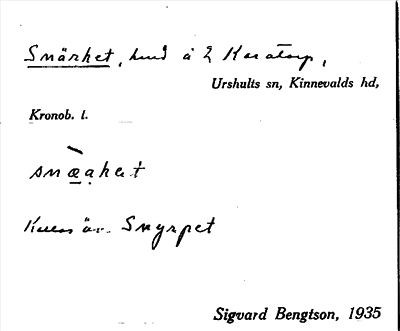 Snärket, lund å 2 Karatorp,
Urshults sn, Kinnevalds hd,
Kronob. l.
snæạket
Kallas äv. Snyrpet
Sigvard Bengtson, 1935